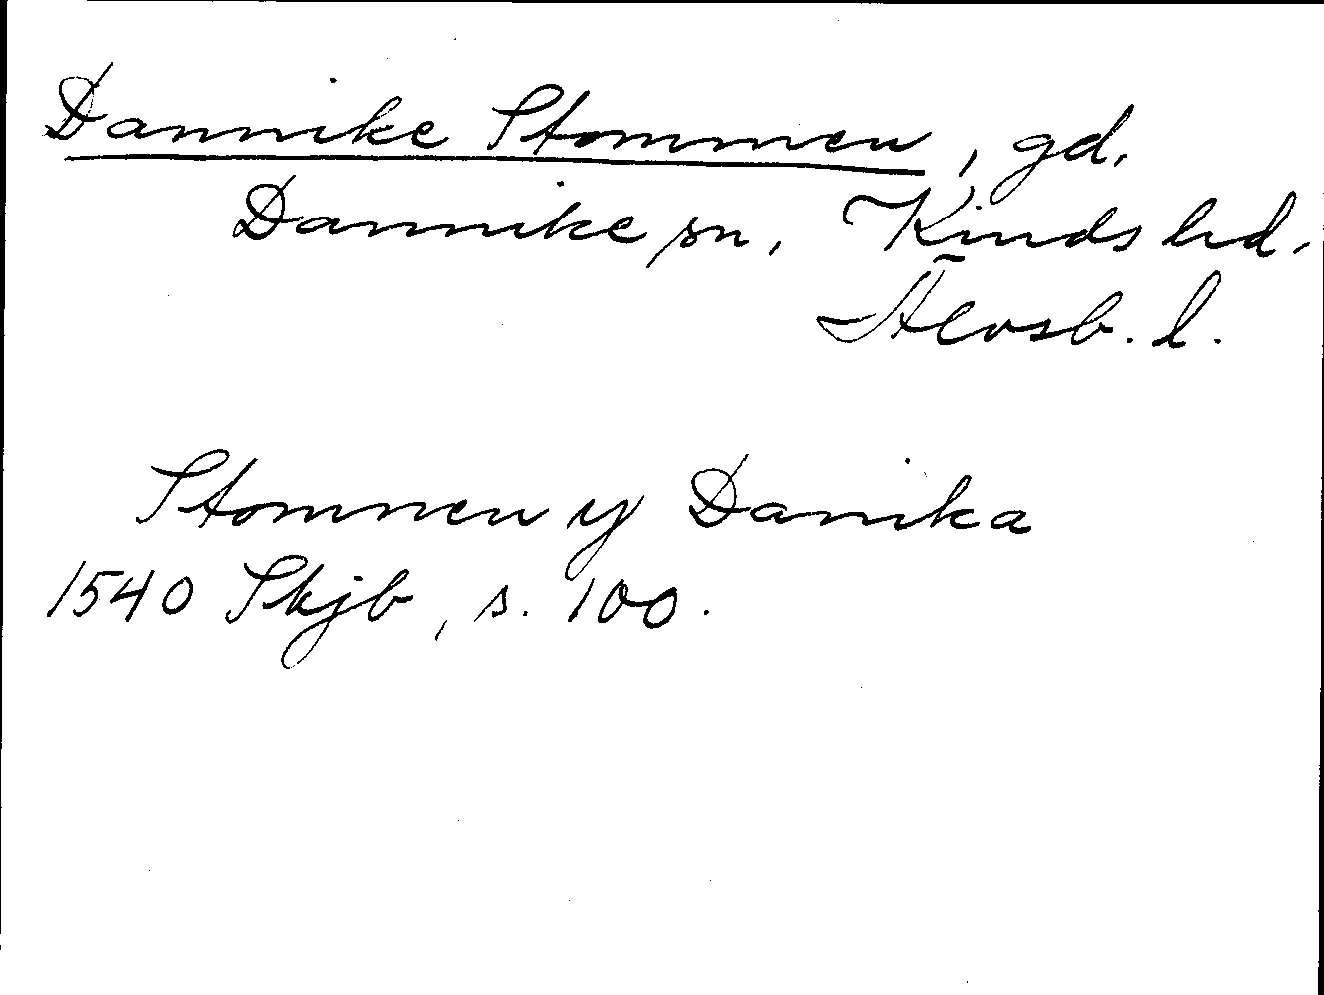 Dannike Stommen, gd.
Dannike sn, Kinds hd.
Älvsb. l.
Stomnen y Danika
1540 Skjb, s. 100.